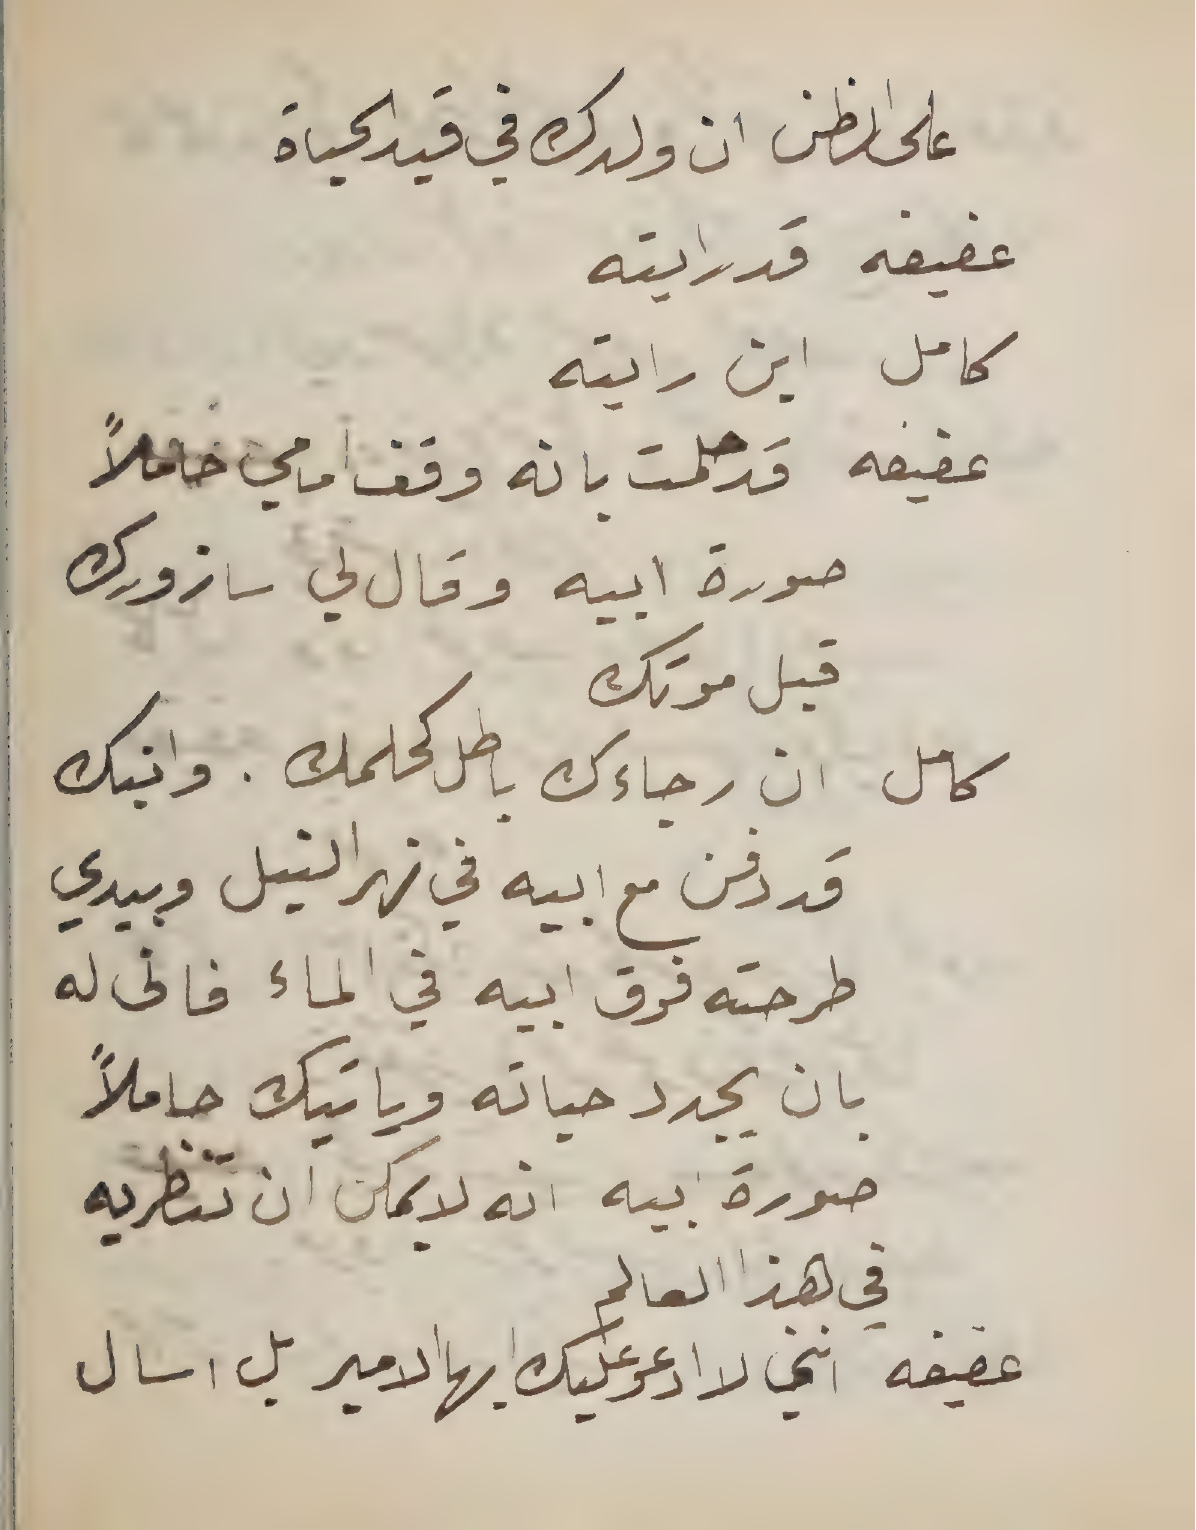 على الظن ان ولدك في قيد الحياة
عفيفه قد رايته
كامل اين رايته
عفيفه قد حلمت بانه وقف امامي حاملاً
صورة ابيه وقال لي سازورك
قبل موتك
كامل ان رجاءك باطل كحلمك . وابنك
قد دفن مع ابيه في نهر النيل وبيدي
طرحته فوق ابيه في الماء فانى له
بان يجدد حياته وياتيك حاملاً
صورة ابيه انه لا يمكن ان تنظريه
في هذا العالم
عفيفه انني لا ادعو عليك ايها الامير بل اسال